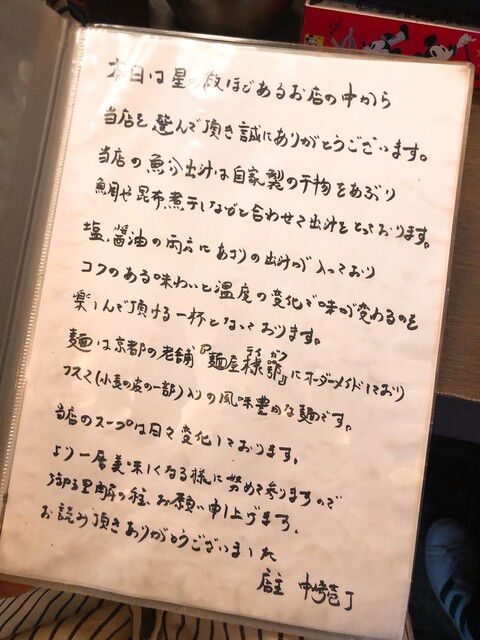 本日は星の数ほどあるお店の中から
当店を選んで頂き誠にありがとうございます。
当店の魚介出汁は自家製の干物をあぶり
鯛や昆布煮干しなどと合わせて出汁をとっております。
塩、醤油の両方にあさりの出汁が入っており
コクのある味わいと温度の変化で味が変わるのを
楽しんで頂ける一杯となっております。
麺は京都の老舗『麺屋棣鄂』にオーダーメイドしており
テイ ガク
フスマ(小麦の皮の一部)入りの風味豊かな麺です。
当店のスープは日々変化しております。
より一層美味しくなる様に努めて参りますので
御理解の程、お願い申し上げます。
お読み頂きありがとうございました
店主 中崎壱丁